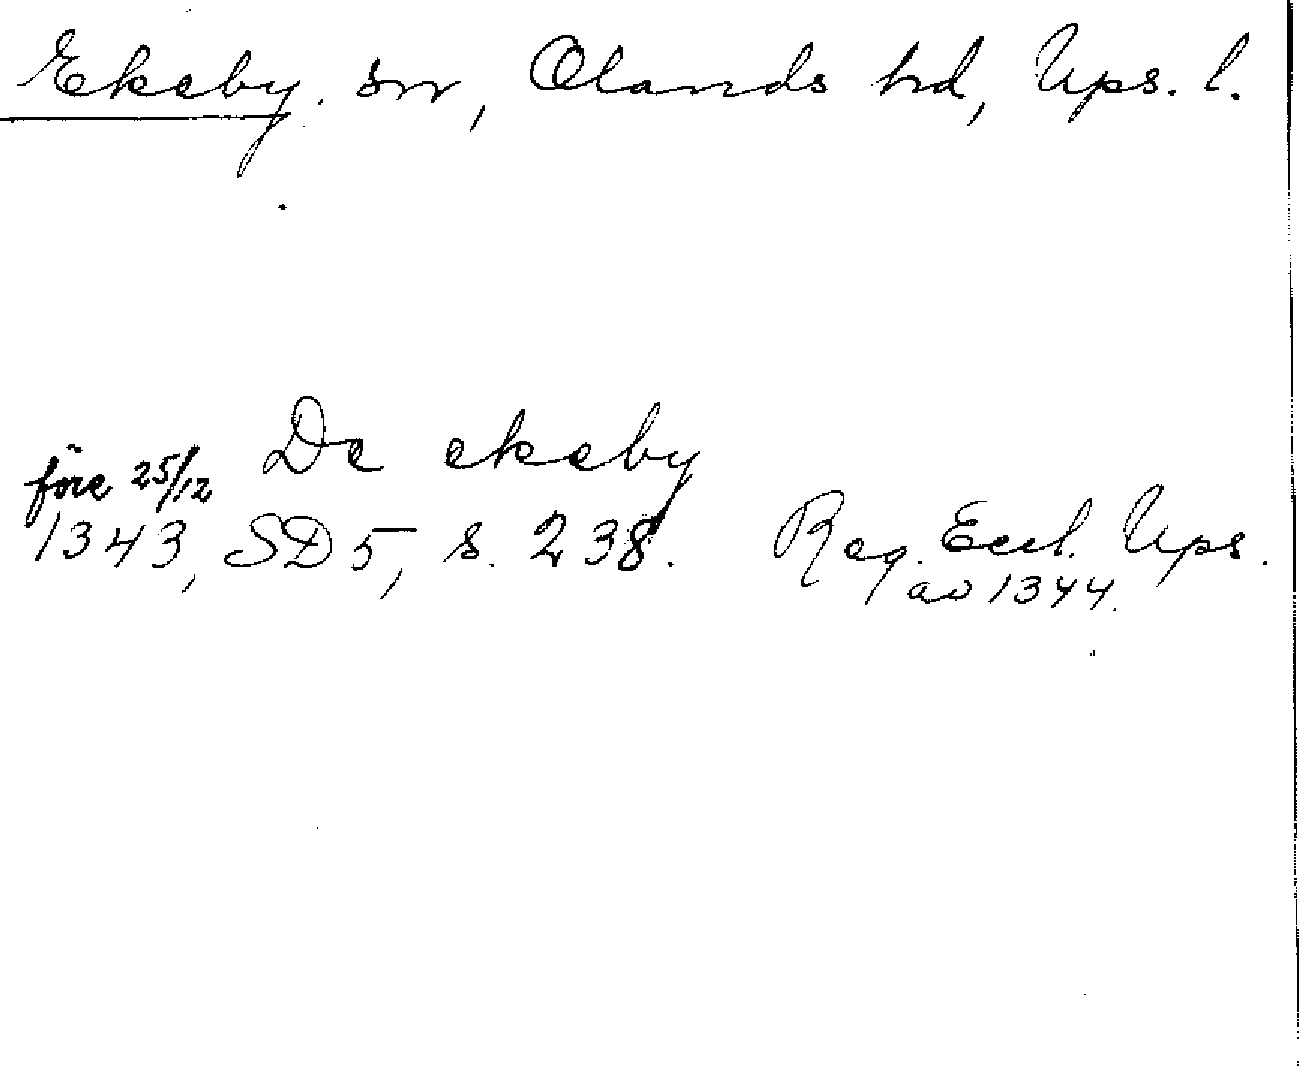 Ekeby. sn, Olands hd, Ups. l.
De ekeby
före 25/12
1343, SD 5, s. 238. Reg. Eccl. Ups.
av 1344.